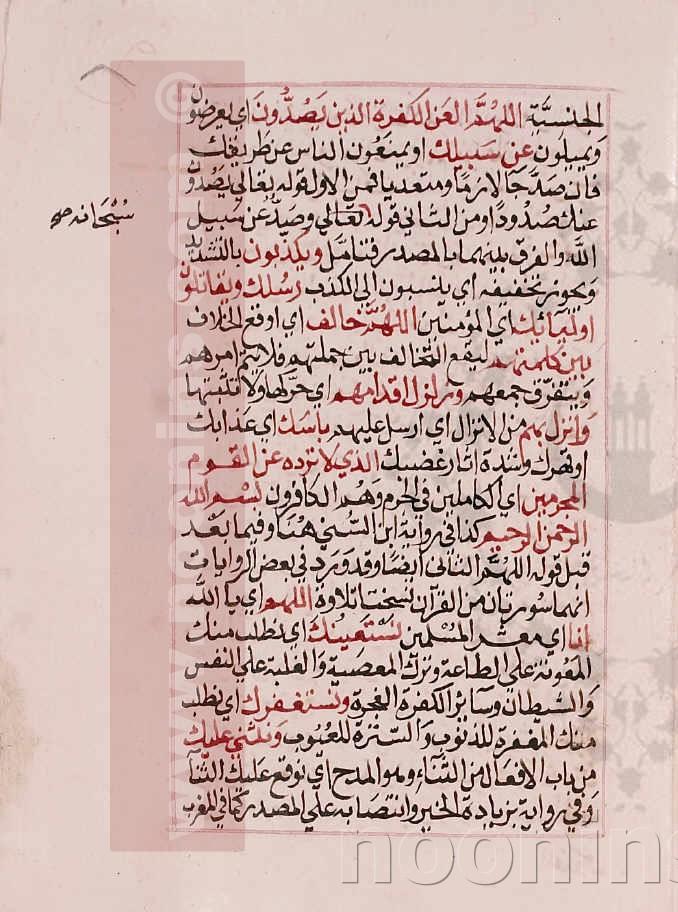 الجنسيّة اللهُمَّ العن الكفرة الذين يَصُدُّونَ اي يعرضون
ويميلون عن سَبيلِك او يمنعُون الناس عن طريقك
فان صدّ جَا لازمًا ومتعديا فمن الاول قوله تعالى يَصُدّون
عنك صُدُودًا ومن الثاني قوله تعالى وصَدٌّ عن سَبيل
الله والفرق بينهما بالمصدر فتأمّل ويكذّبون بالتشديد
ويجوز تخفيفه اي ينسبون الى الكذب رُسُلك ويقاتلون
اوليَائِك اي المؤمنين اللهُمَّ خالف اي اوقع الخلاف
بين كلمتهم ليقع التخالف بين جملتهم فلا يتم امرهم
ويتفرّق جمعهم وزلزل اقدامهم اي حرّكها ولا تثبتها
وانزل بهم من الانزال اي ارسل عليهم باسَك اي عذابك
او قهرك وشدة اثار غضبك الذي لا ترده عن القوم
المجرمين اي الكاملين في الجرم وهم الكافرون بسم الله
الرحمن الرحيم كذا في رواية ابن السّني هنا وفيما بعد
قبل قوله اللهُمَّ الثانى ايضا وقد ورد في بعض الروايات
انهما سورتان من القرآن نسخت تلاوة اللهم اي يا الله
انا اي معشر المسْلمين نسْتَعينُك اي نطلب منك
المعُونة على الطاعة وترك المعصية والغلبة على النفس
وَالشيطان وسَائر الكفرة الفجرة ونستغفرك اي نطلب
منك المغفرة للذنوب والسترة للعُيُوب ونثني عليك
من باب الافعال من الثناء وهو المدح اي نوقع عليك الثناء
وفي رواية بزيادة الخير وانتصابه على المصدر كما في المغرب
سُبْحَانه صح
www.noonins
noonins